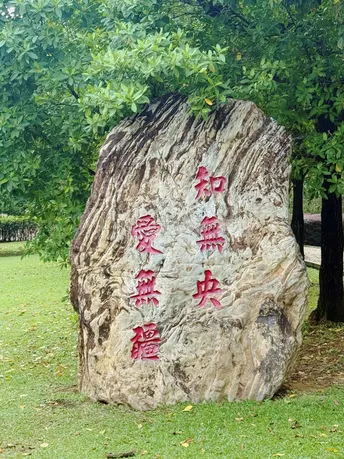 知無央
愛無疆